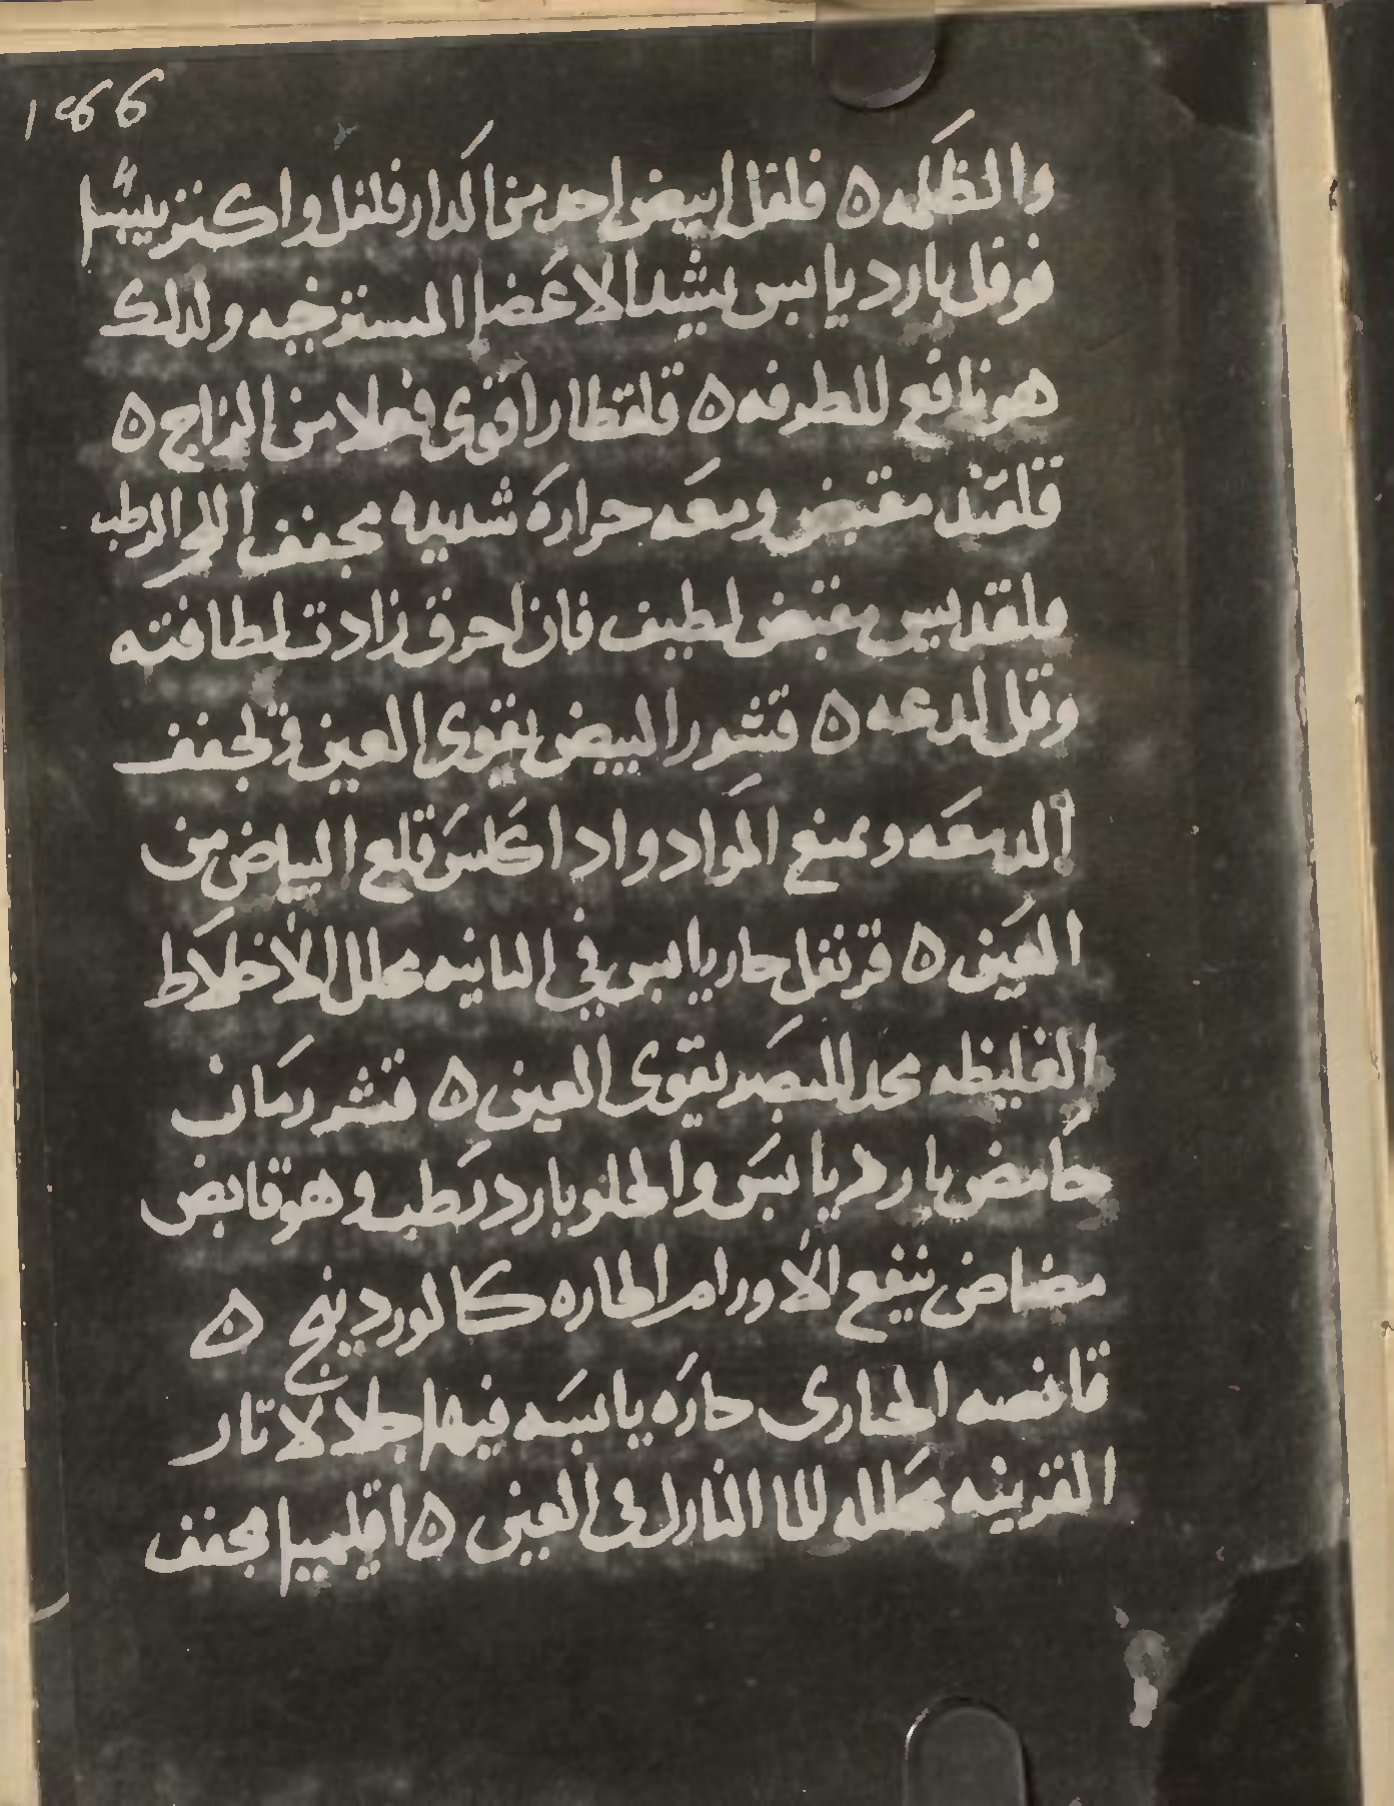 166
والظلمه ه فلفل ابيض احد من الدار فلفل واكثر يبسا
فوفل بارد يابس يشد الاعضا المسترخيه ولذلك
هو نافع للطرفه ه قلقطار اقوى فعلا من الزاج ه
قلقند مقبض ومعه حراره شديده مجفف اللحم الرطب
ملقديس مقبض لطيف فان احرق زادت لطافته
وقل لدعه ه قشور البيض يقوى العين ويجفف
الدمعه ويمنع المواد وادا كلس قلع البياض من
العين ه قرنفل حار يابس في الثانيه محلل الاخلاط
الغليظه محد للبصر يقوى العين ه قشر رمان
حامض بارد يابس والحلو بارد رطب وهو قابض
مضاض ينفع الاورام الحاره كالوردينج ه
قانصه الحبارى حاره يابسه فيها جلا لاثار
القرنيه محلله للما النازل في العين ه اقليميا مجفف